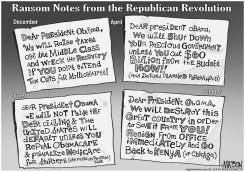 Ransom Notes from the Republican Revolution
December
April
Dear President Obama,
We will raise taxes
on the Middle Class
and wreck the Recovery
if you don't extend
Tax Cuts for Millionaires!
Dear President Obama,
We will shut down
your precious government
unless you cut $60
Billion from the Budget
NOW!!
(and defund Planned Parenthood)
Dear President Obama
We will not raise the
Debt Ceiling & the
United States will
default unless you
repeal Obamacare
& privatize Medicare
Dear President Obama,
We will destroy this
great country in order
to save it from YOU!
Resign from office
immediately and Go
Back to Kenya (or Chicago)